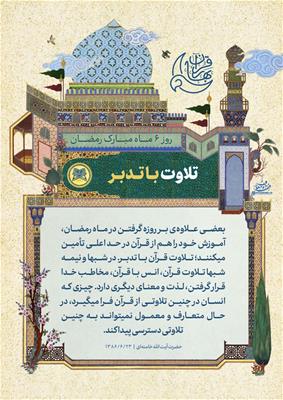 بهار قرآن
روز ۶ ماه مبارک رمضان
تلاوت با تدبر
بعضی علاوه‌ی بر روزه گرفتن در ماه رمضان،
آموزش خود را هم از قرآن در حد اعلی تأمین
میکنند؛ تلاوت قرآن با تدبر در شبها و نیمه
شبها تلاوت قرآن، انس با قرآن، مخاطب خدا
قرار گرفتن، لذت و معنای دیگری دارد. چیزی که
انسان در چنین تلاوتی از قرآن فرا میگیرد، در
حال متعارف و معمول نمیتواند به چنین
تلاوتی دسترسی پیدا کند.
حضرت آیت الله خامنه‌ای | ۱۳۸۶/۶/۲۳